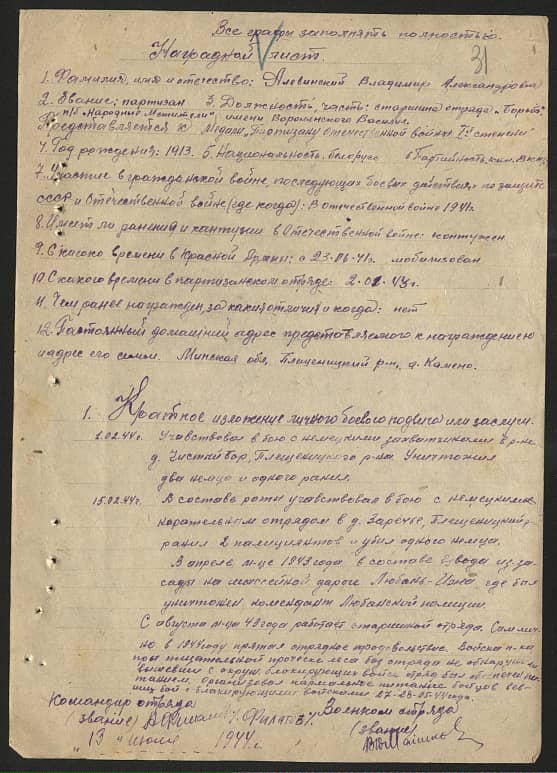 Все графы заполнять полностью.
31
Наградной лист.
1. Фамилия, имя и отчество: Алевинский Владимир Александрович
2. Звание: партизан 3. Должность, часть: старшина отряда "Борьба"
п/б "Народные Мстители" имени Воронянского Василия.
Представляется к Медали "Партизану Отечественной войны" I-й степени
4. Год рождения: 1913. 5. Национальность: белорус 6 Партийность:
7. Участие в гражданской войне, последующих боевых действиях по защите
СССР и Отечественной войне (где когда): В отечественной войне 1941г.
8. Имеет ли ранения и контузии в Отечественной войне: контужен
9. С какого времени в Красной Армии: с 23-06-41г. мобилизован
10. С какого времени в партизанском отряде: 2-02-43г.
11. Чем ранее награжден, за какие отличия и когда: нет
12. Постоянный домашний адрес представляемого к награждению
и адрес его семьи. Минская обл, Плещеницкий р-н, д. Камено.
1. Краткое изложение личного боевого подвига или заслуги.
1.02.44г. Учавствовал в бою с немецкими захватчиками в р-не
д. Чистый бор, Плещеницкого р-на. Уничтожил
два немца и одного ранил.
15.02.44г. В составе роты учавствовал в бою с немецким
карательным отрядом в д. Заречье, Плещеницкий р-
ранил 2 палициянтов и убил одного немца.
В апреле м-це 1943 года в составе взвода из за-
сады на шоссейной дороге Любань-, где был
уничтожен комендант Любанской полиции.
С августа м-ца 43 года работает старшиной отряда. Самлич-
но в 1944 году прятал отрядное продовольствие. Войска
при тщательной прочёске леса баз отряда не обнаружили
блокирующих войск отряд был обеспечен пи-
танием, организовал нормальное питание бойцов
с блокирующими войсками 27-28-05-44 года.
Командир отряда Военком отряда
(звание) Филатов (звание)
"13" июля 1944г.